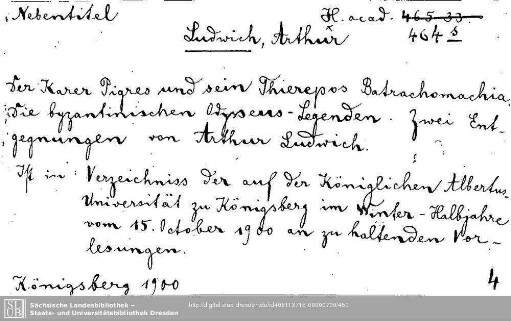 Nebentitel
H. acad. 465 33
464 s
Ludwich, Arthur
Der Karer Pigres und sein Thierepos Batrachomachia.
Die byzantinischen Odysseus-Legenden. Zwei Ent-
gegnungen von Arthur Ludwich.
Ist in: Verzeichniss der auf der Königlichen Albertus-
Universität zu Königsberg im Winter-Halbjahre
vom 15. October 1900 an zu haltenden Vor-
lesungen.
Königsberg 1900
4
SLUB
Sächsische Landesbibliothek –
Staats- und Universitätsbibliothek Dresden